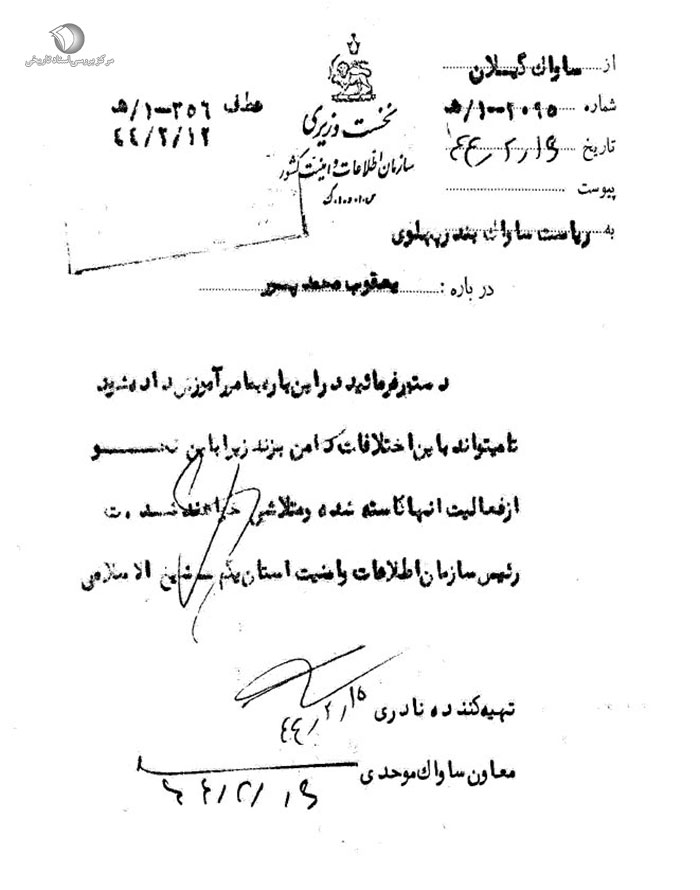 مرکز بررسی اسناد تاریخی
نخست وزیری
سازمان اطلاعات و امنیت کشور
س.ا.و.ا.ک
از ساواک گیلان
شماره ۲۰۹۵-۱/ه
تاریخ ۴۴/۲/۱۶
پیوست
عطف ۳۵۶-۱/ه
۴۴/۲/۱۲
به ریاست ساواک بندرپهلوی
درباره : یعقوب محمدپور
دستور فرمائید در این باره بمامور آموزش داده شود
تا میتواند باین اختلافات دامن بزند زیرا باین نحو
از فعالیت انها کاسته شده و متلاشی خواهند شد . ت
رئیس سازمان اطلاعات و امنیت استان یکم - شیخ الاسلامی
تهیه کننده نادری
۴۴/۲/۱۵
معاون ساواک موحدی
۴۴/۲/۱۶